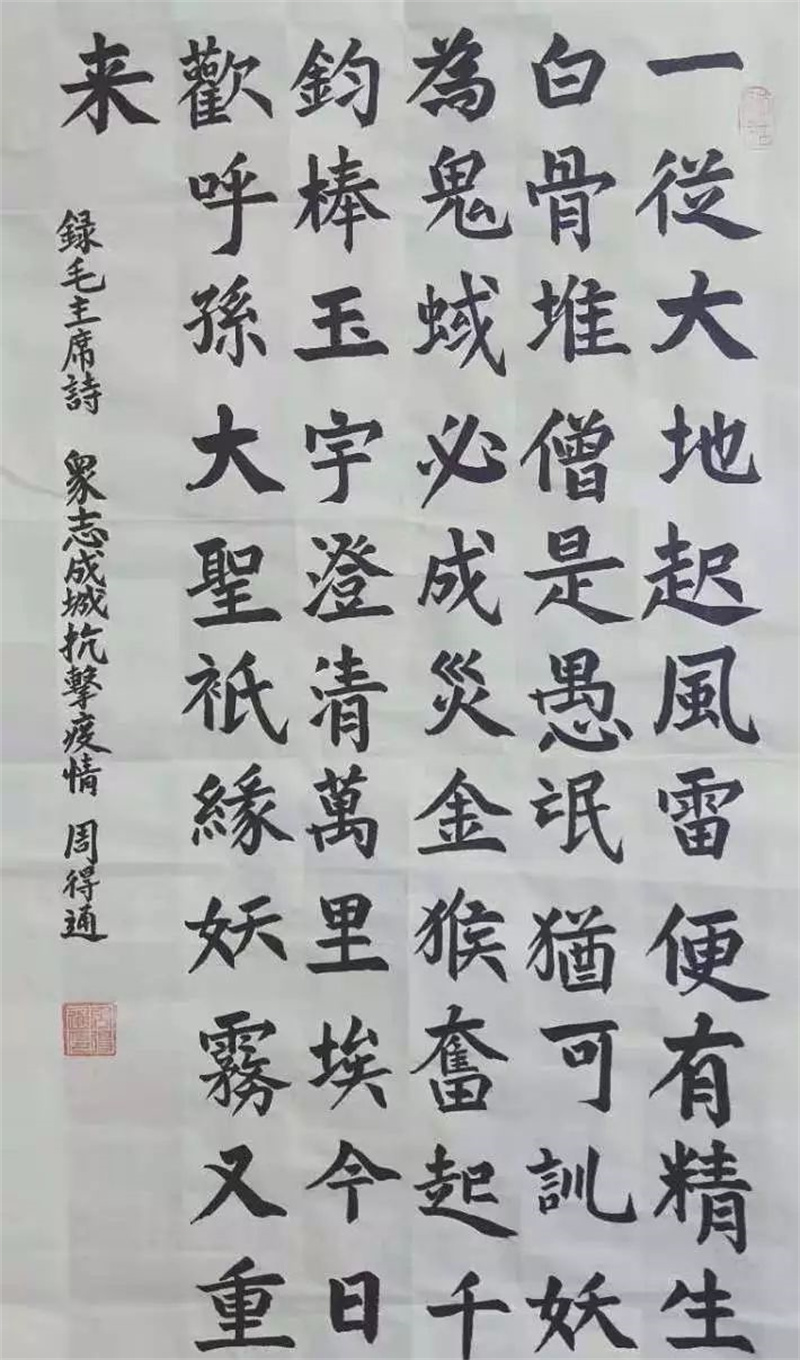 一從大地起風雷便有精生
白骨堆僧是愚氓猶可訓妖
為鬼蜮必成災金猴奮起千
鈞棒玉宇澄清萬里埃今日
歡呼孫大聖衹緣妖霧又重
来
録毛主席詩 衆志成城抗擊疫情 周得通